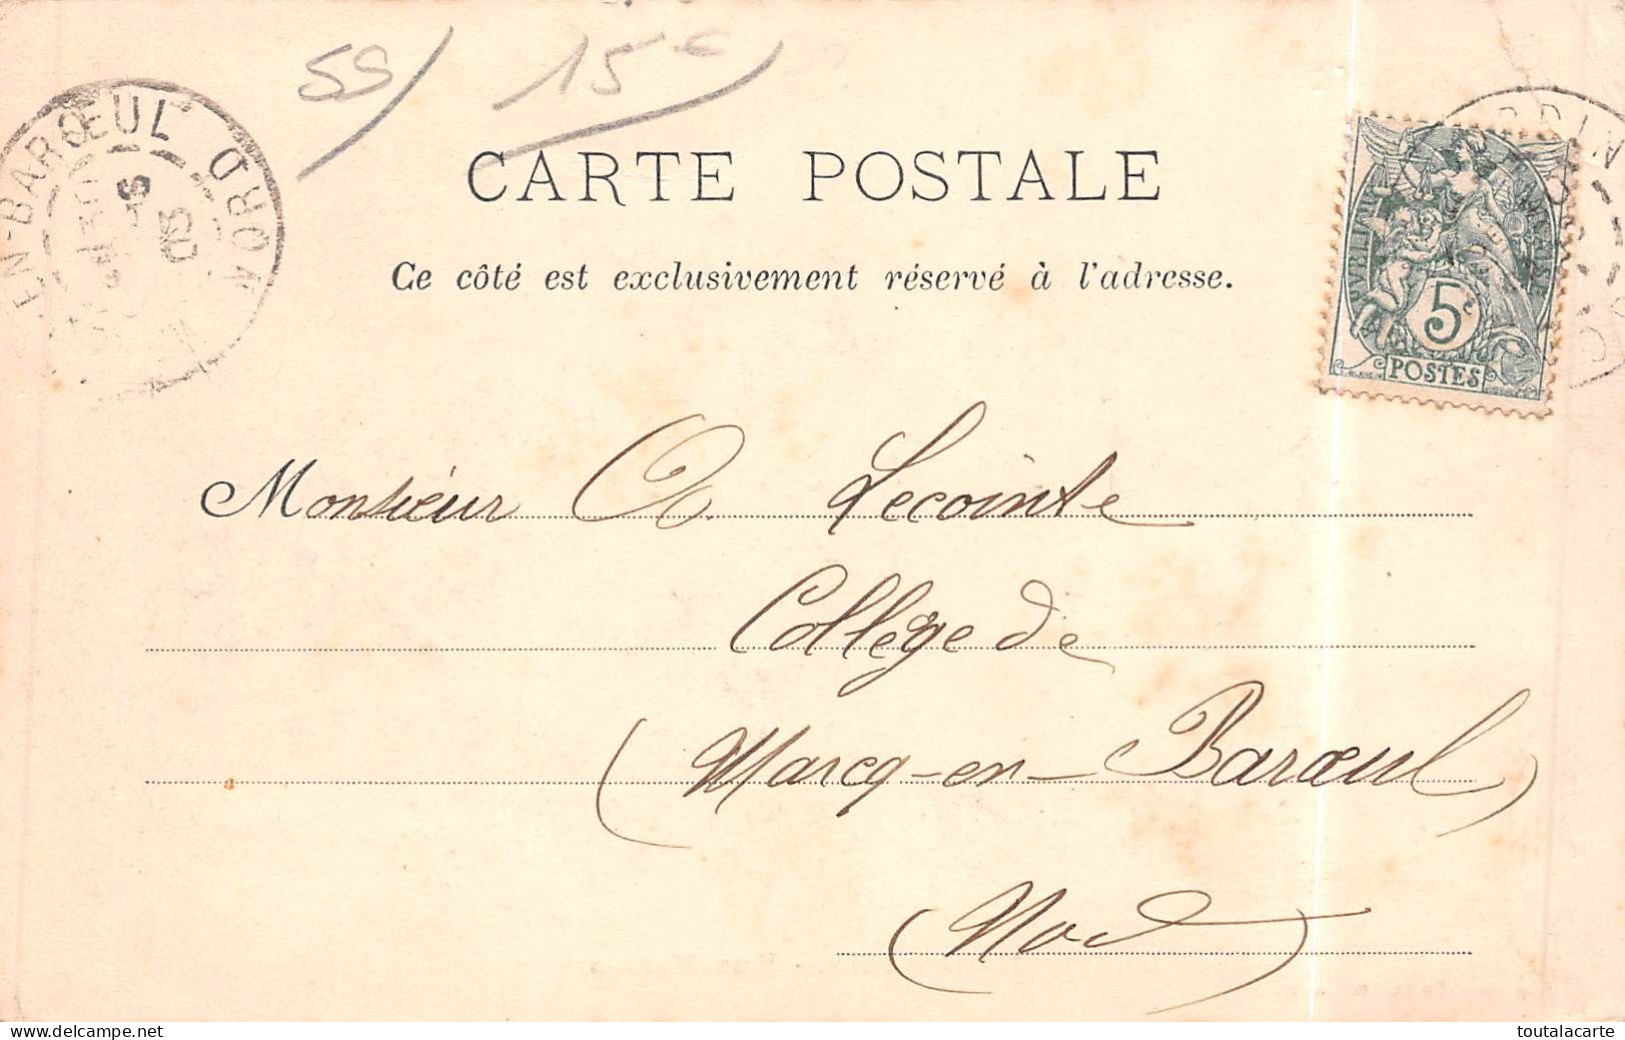 55/ 15€
EN-BARŒUL NORD
CARTE POSTALE
Ce côté est exclusivement réservé à l'adresse.
5c
POSTES
Monsieur A. Lecointe
Collège de
(Marcq-en-Barœul)
(Nord)
toutalacarte